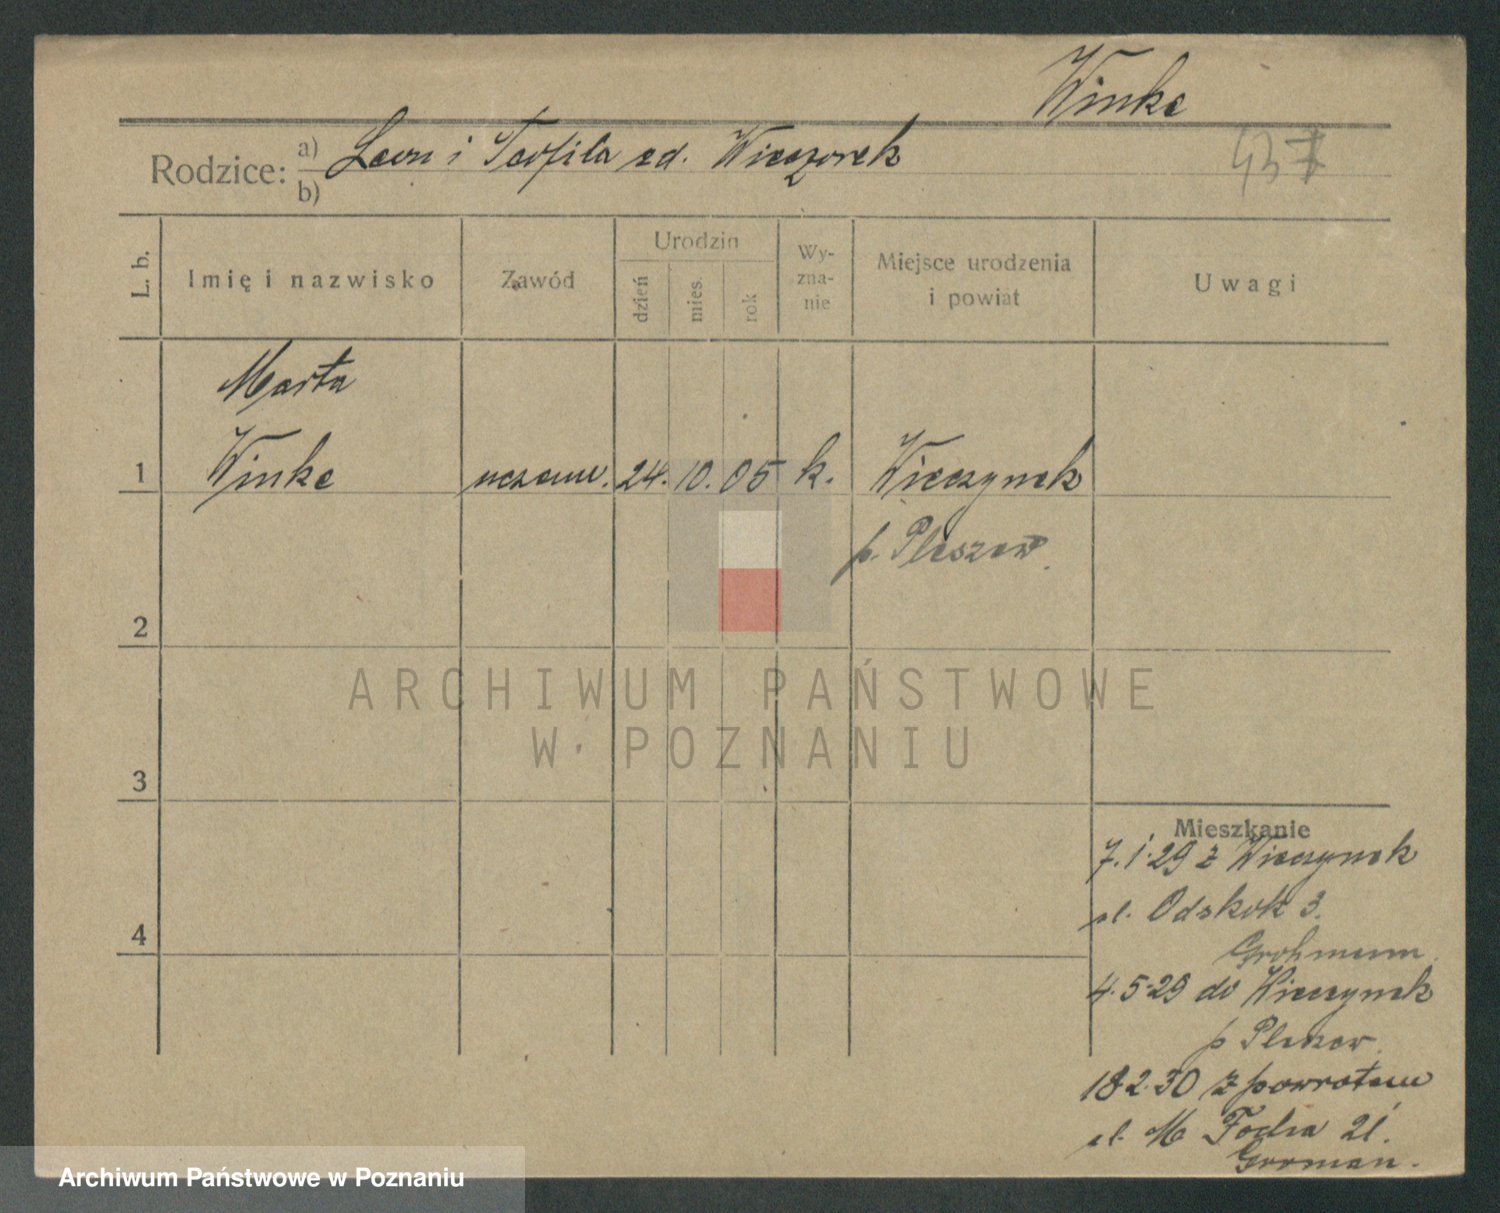 Winke
Rodzice: a) Leon i Teofila zd. Wieczorek
b)
437
L. b. Imię i nazwisko Zawód Urodzin dzień mies. rok Wy-zna-nie Miejsce urodzenia i powiat Uwagi
Marta
1 Winke uczenn. 24. 10. 05 k. Wieczynek
p. Pleszew.
2
ARCHIWUM PAŃSTWOWE
W POZNANIU
3
Mieszkanie
7.1.29 z Wieczynek
ul. Odskok 3.
Grohmann.
4
4.5.29 do Wieczynek
p Pleszew.
18 2.30 z powrotem
ul. M Focha 21.
Groman.
Archiwum Państwowe w Poznaniu